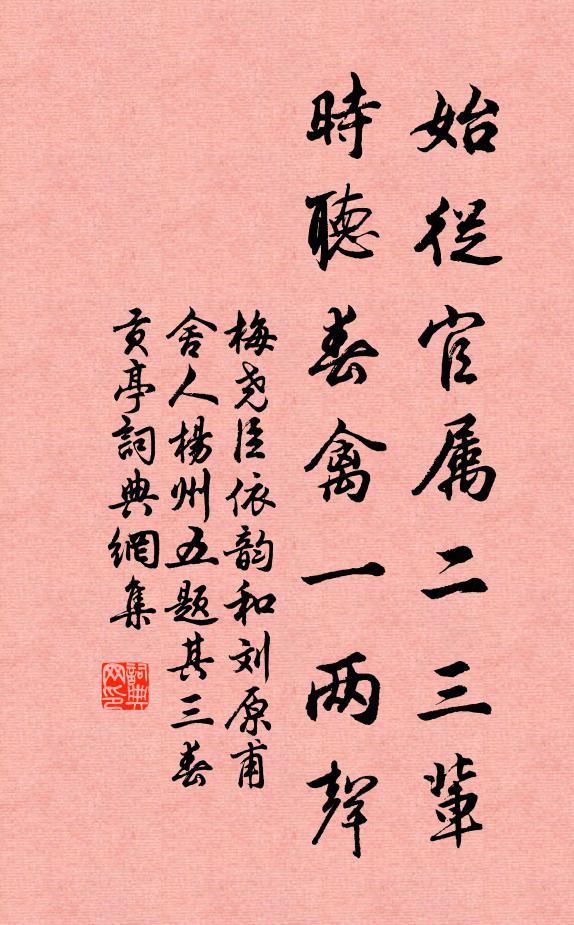 始從官属二三輩
時聽春禽一两聲
梅尧臣依韵和刘原甫
舍人楊州五题其三春
贡亭詞典網集
詞典网印